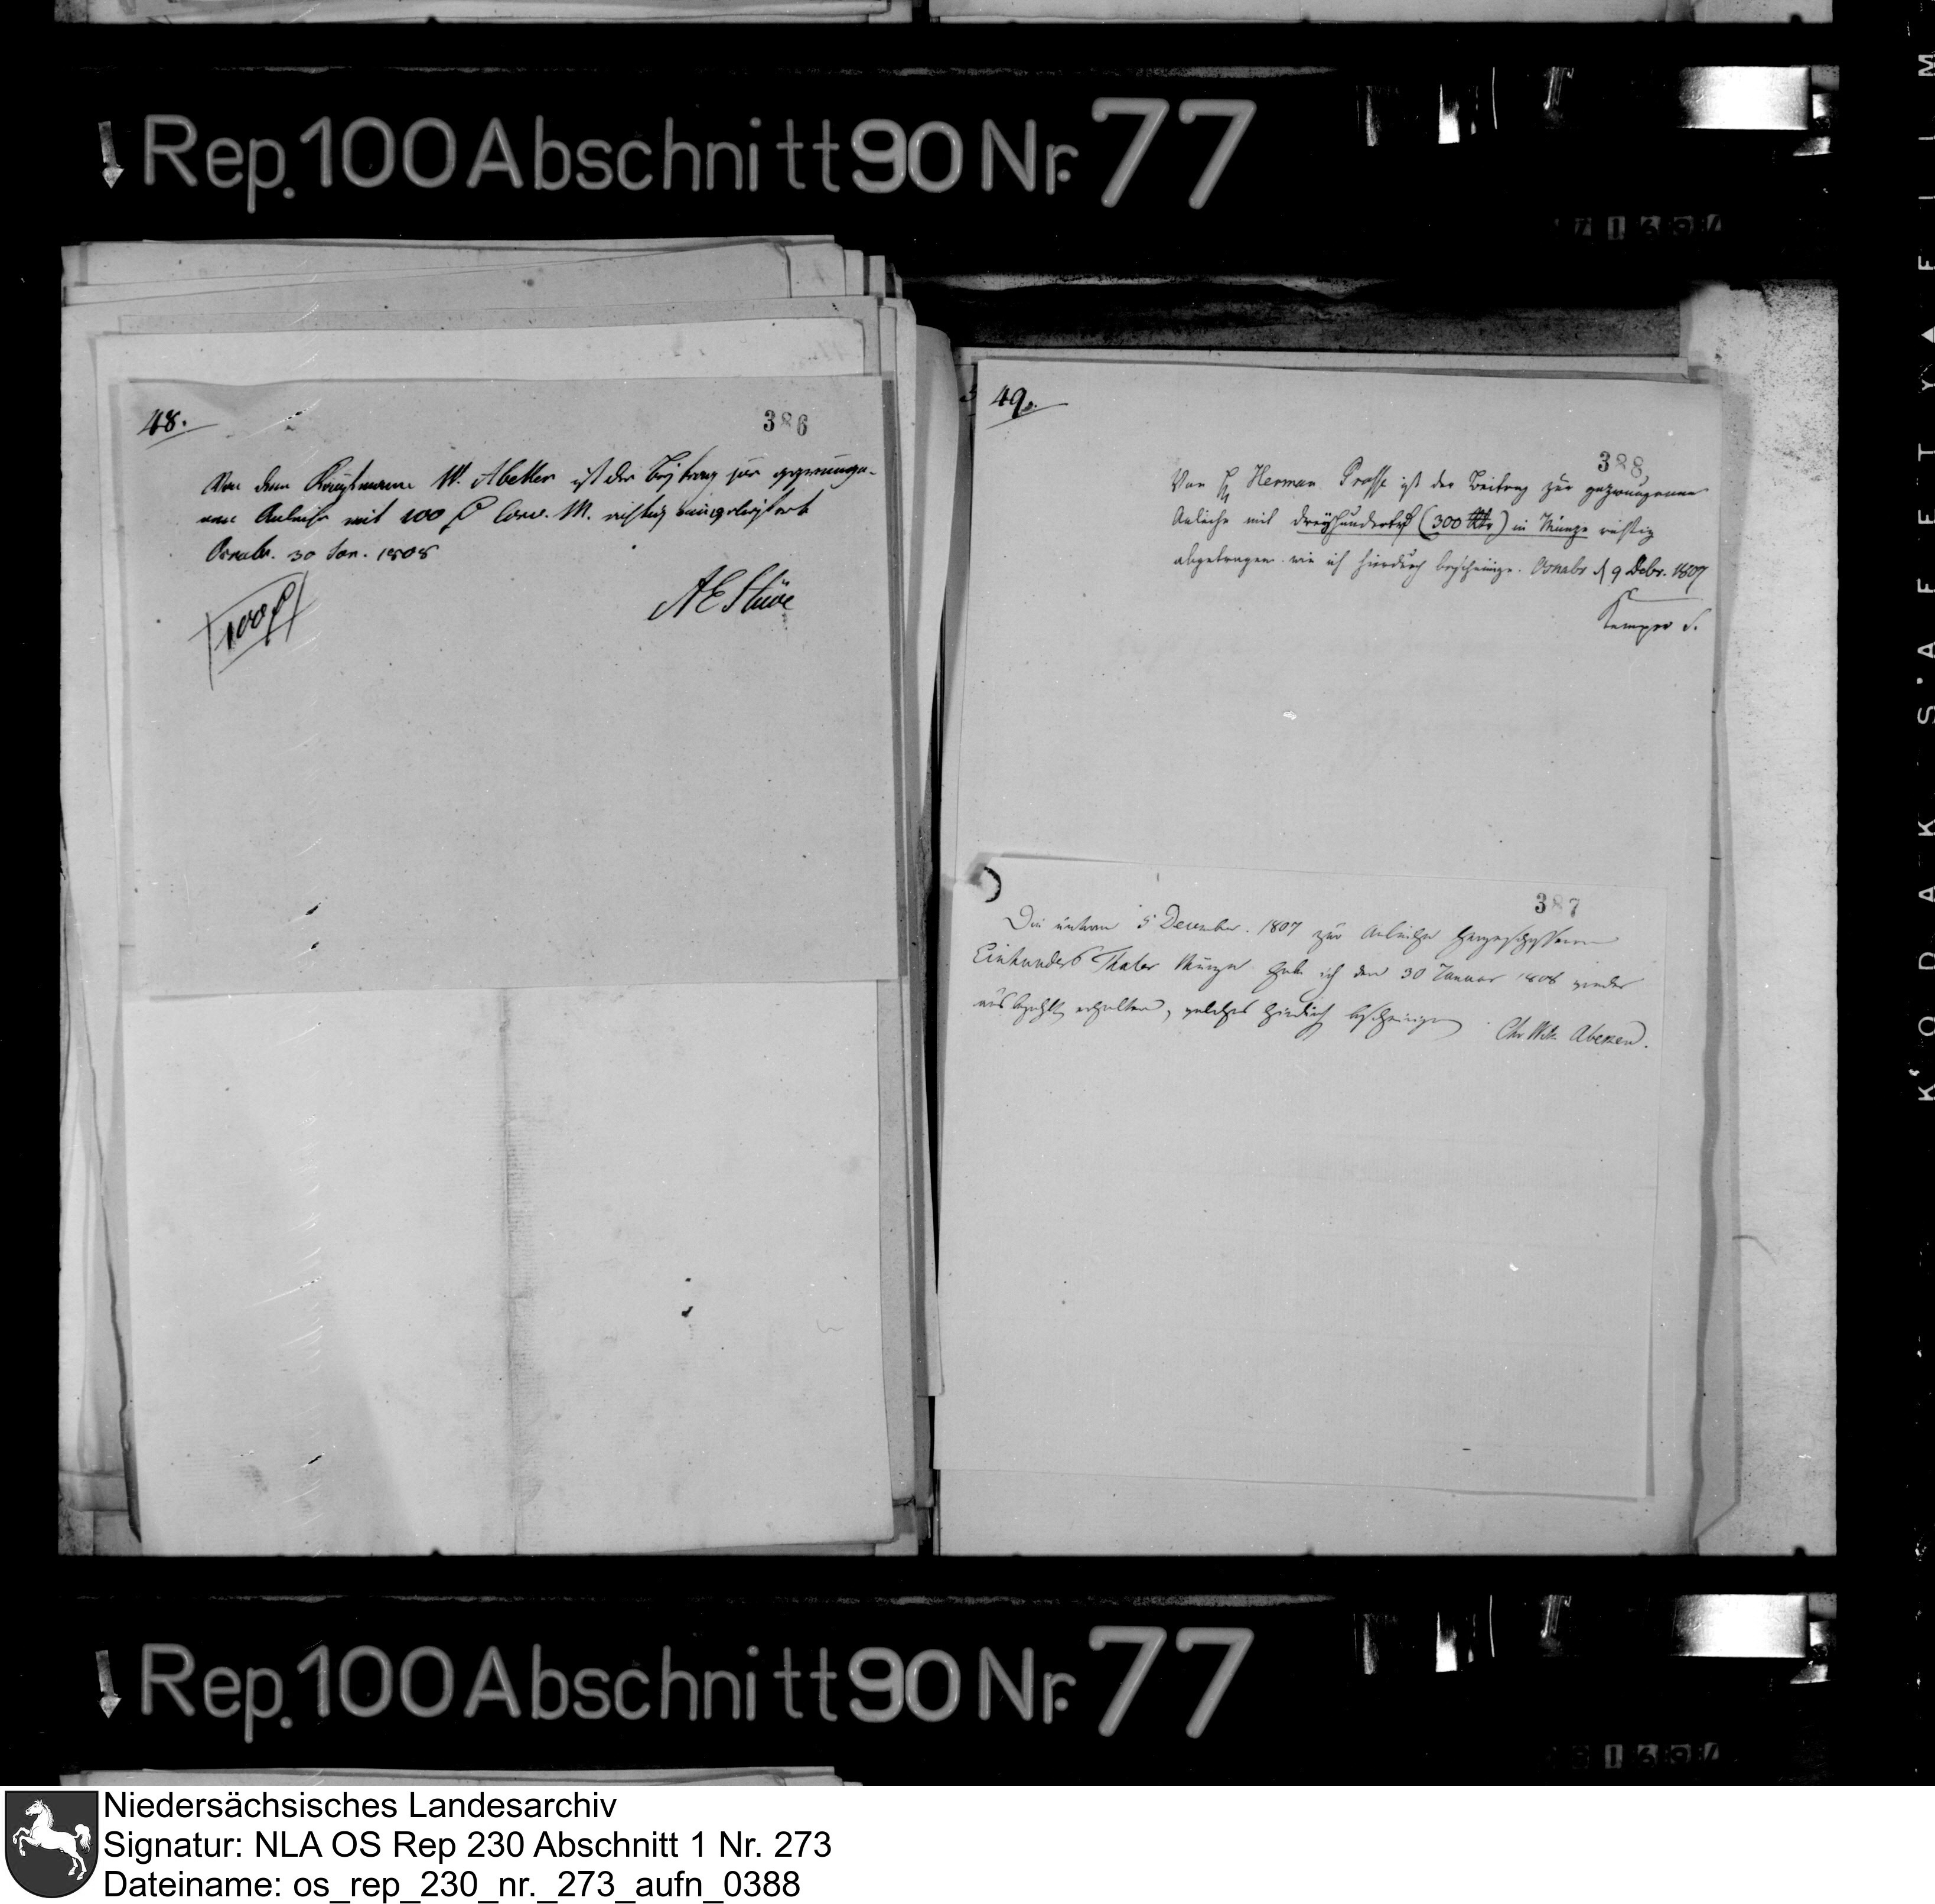 Rep. 100 Abschnitt 90 Nr. 77
48.
386
Von dem Kaufmann W. Abeken ist der Beytrag zur gezwunge-
nen Anleihe mit 100 Conv. M. richtig eingeliefert
Osnabr. 30 Jan. 1808
100
AE Stüve
49.
388
Von H Herman Prasse ist der Beitrag zur gezwungenen
Anleihe mit dreyhundert (300 Rtr) in Münze richtig
abgetragen wie ich hierdurch bescheinige. Osnabr d 9 Debr. 1807
Kemper
387
Die unterm 5 December. 1807 zur Anleihe hergeschossenen
Einhundert Thaler Münze habe ich den 30 Januar 1808 wieder
ausbezahlt erhalten, welches hiedurch bescheinige
Chr Wilh Abeken.
Rep. 100 Abschnitt 90 Nr. 77
KODAK SAFETY FILM
Niedersächsisches Landesarchiv
Signatur: NLA OS Rep 230 Abschnitt 1 Nr. 273
Dateiname: os_rep_230_nr._273_aufn_0388